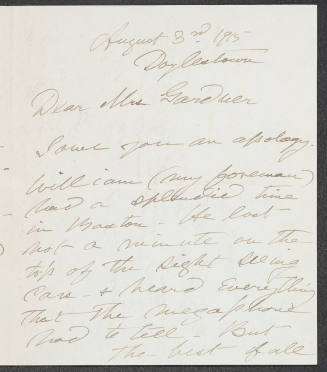 August 3rd 1915
Doylestown
Dear Mrs Gardner
I owe you an apology.
William (my foreman)
had a splendid time
in Boston - He lost
not a minute on the
top of the sight seeing
cars - & heard everything
that the megaphone
had to tell - But
the best of all